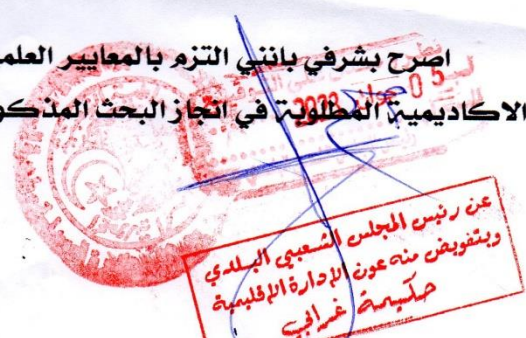 اصرح بشرفي بانني التزم بالمعايير العلم
الاكاديمية المطلوبة في انجاز البحث المذكو
05 جوان 2023
عن رئيس المجلس الشعبي البلدي
وبتفويض منه عون الإدارة الإقليمية
حكيمة غرايب